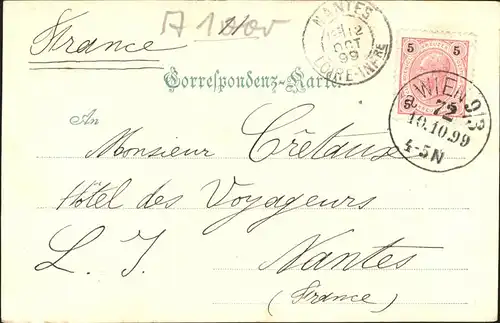 France
NANTES
12
OCT
99
LOIRE-INFRE
5 5
5
Correspondenz-Karte
WIEN 9/3
72
10.10.99
4-5N
An
Monsieur Crétaux
Hôtel des Voyageurs
L. I. Nantes
(France)